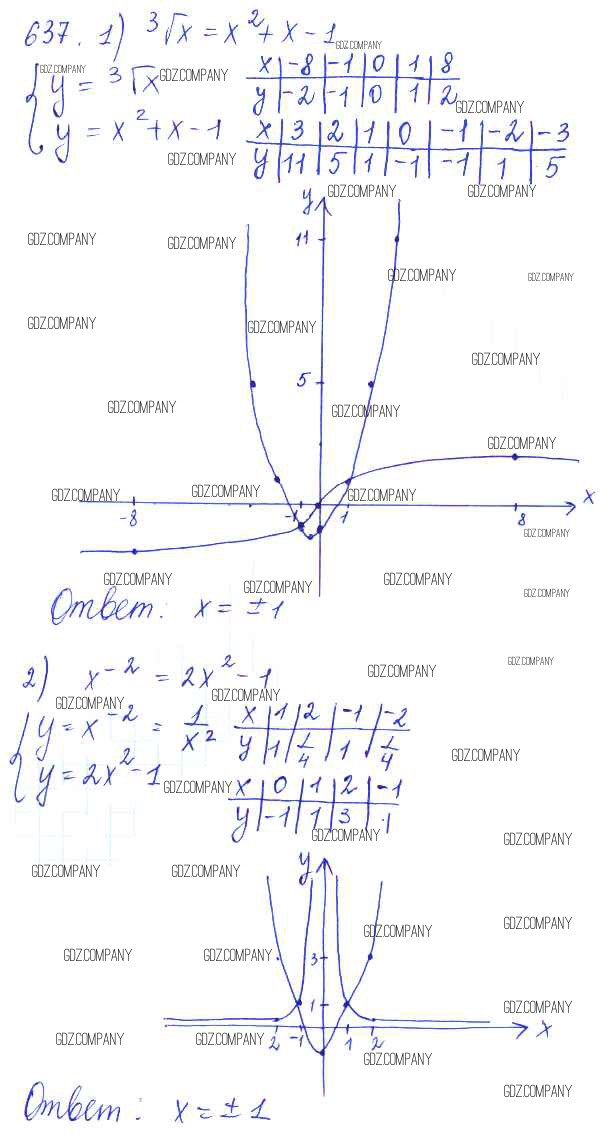 637. 1) ³√x = x² + x - 1
GDZ.COMPANY
GDZ.COMPANY
{ y = ³√x GDZ.COMPANY x | -8 | -1 | 0 | 1 | 8
y | -2 | -1 | 0 | 1 | 2
GDZ.COMPANY
y = x² + x - 1 x | 3 | 2 | 1 | 0 | -1 | -2 | -3
GDZ.COMPANY y | 11 | 5 | 1 | -1 | -1 | 1 | 5
y GDZ.COMPANY GDZ.COMPANY
11
GDZ.COMPANY GDZ.COMPANY
GDZ.COMPANY GDZ.COMPANY
GDZ.COMPANY GDZ.COMPANY
GDZ.COMPANY
5
GDZ.COMPANY GDZ.COMPANY
GDZ.COMPANY
GDZ.COMPANY GDZ.COMPANY GDZ.COMPANY x
-8 -1 1 8
GDZ.COMPANY
GDZ.COMPANY GDZ.COMPANY GDZ.COMPANY
GDZ.COMPANY
Ответ: x = ±1
GDZ.COMPANY
2) x⁻² = 2x² - 1 GDZ.COMPANY
GDZ.COMPANY GDZ.COMPANY
{ y = x⁻² = 1/x² x | 1 | 2 | -1 | -2
y | 1 | 1/4 | 1 | 1/4
GDZ.COMPANY
y = 2x² - 1 GDZ.COMPANY x | 0 | 1 | 2 | -1
y | -1 | 1 | 3 | 1
GDZ.COMPANY GDZ.COMPANY
y
GDZ.COMPANY GDZ.COMPANY GDZ.COMPANY
GDZ.COMPANY GDZ.COMPANY
GDZ.COMPANY GDZ.COMPANY
3
1 GDZ.COMPANY GDZ.COMPANY
2 -1 1 2 x
GDZ.COMPANY GDZ.COMPANY GDZ.COMPANY
GDZ.COMPANY
GDZ.COMPANY
Ответ: x = ±1